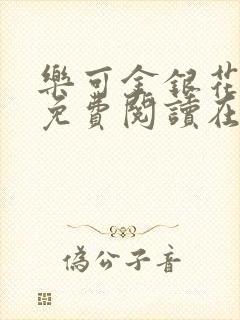 樂可金銀花
免費閱讀在
偽公子音